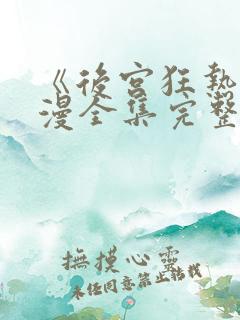 《後宮狂熱
漫全集完整
撫摸心靈
未任同意禁止轉載